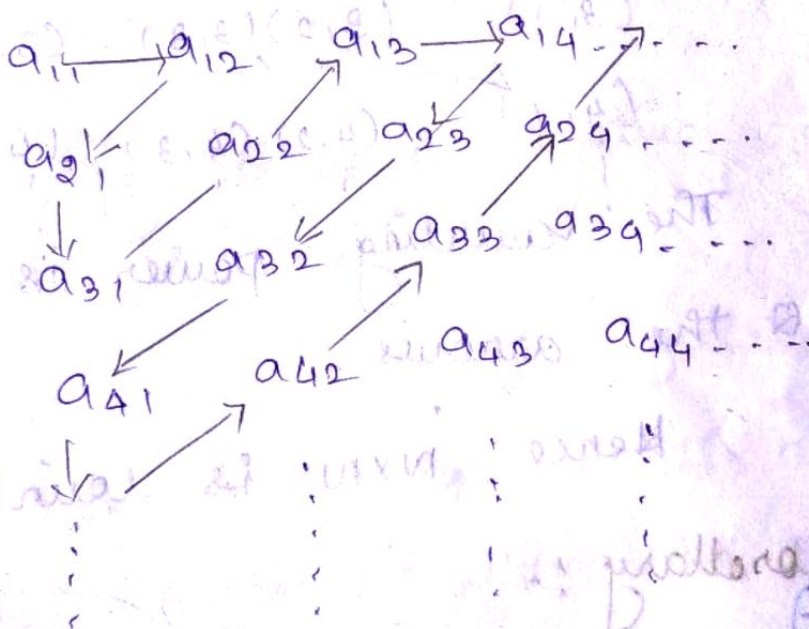 a11 → a12 a13 → a14 - - - -
a21 a22 a23 a24 - - - -
a31 a32 a33 a34 - - - -
a41 a42 a43 a44 - - - -